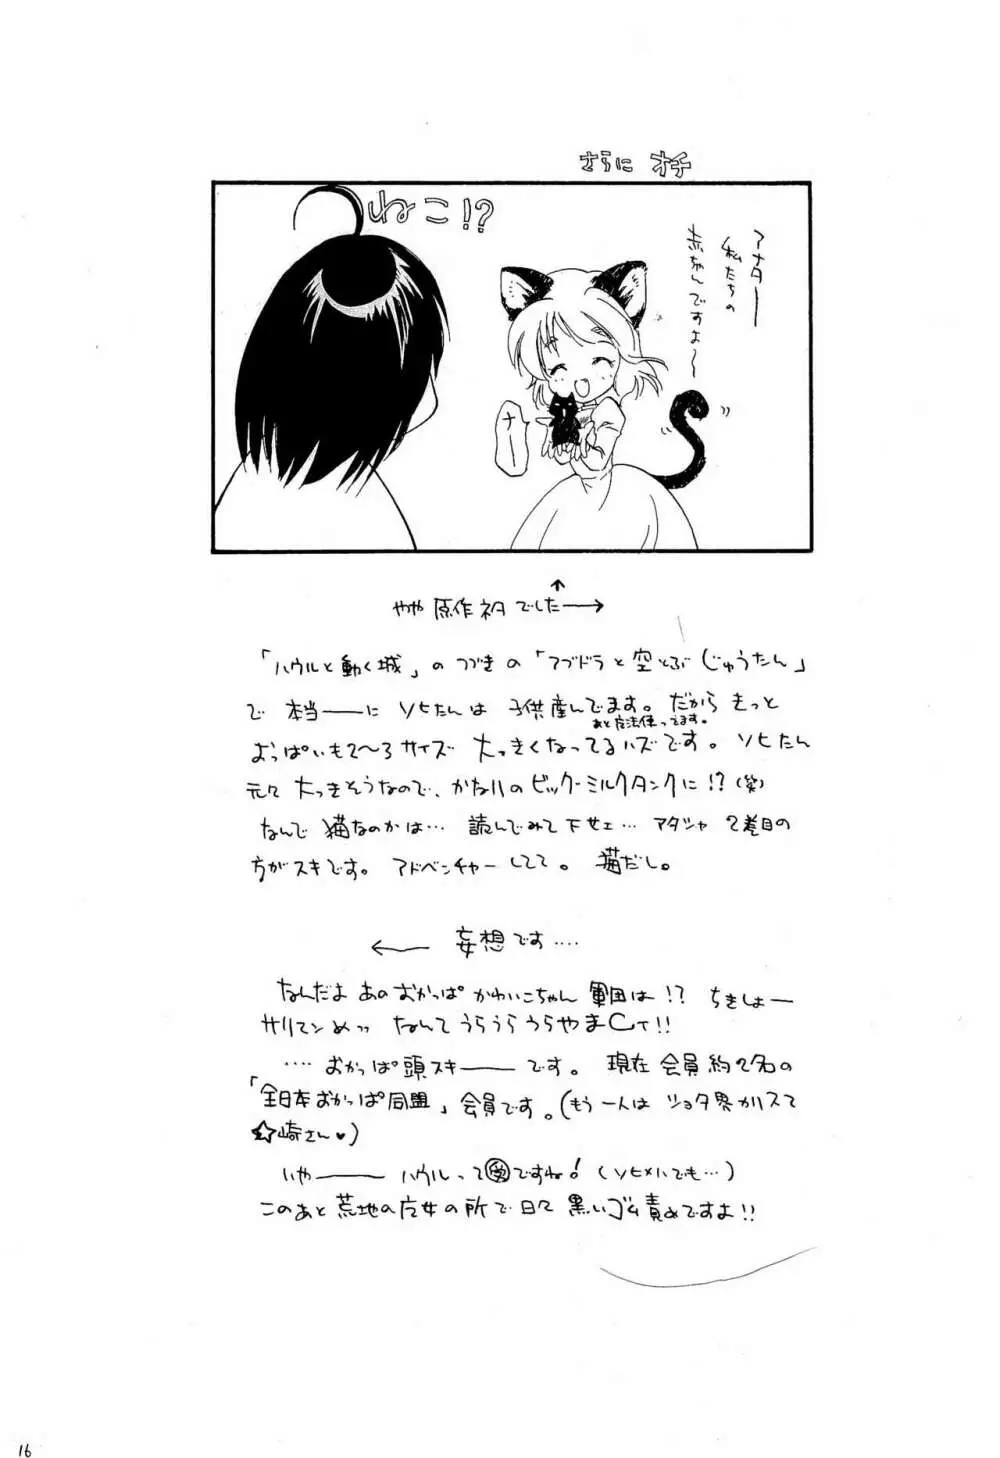 さらに オチ
ねこ!?
アナター
私たちの
赤ちゃんですよ〜
ナー
やや 原作ネタでした→
「ハウルと動く城」のつづきの「アブドラと空とぶじゅうたん」
で 本当――に ソヒたんは 子供産んでます。だから きっと
あと魔法使ってます。
おっぱいも2〜3サイズ 大っきくなってるハズです。ソヒたん
元々 大っきそうなので、かなりのビックーミルクタンクに!?(笑)
なんで 猫なのかは… 読んでみて下せェ… アタシャ 2巻目の
方がスキです。アドベンチャーしてて。猫だし。
← 妄想です‥‥
なんだよ あのおかっぱ かわいこちゃん 軍団は!? ちきしょー
サリマンめッ なんて うらうらうらやましィ!!
‥‥ おかっぱ頭スキ――です。現在 会員約2名の
「全日本おかっぱ同盟」会員です。(もう一人は ショタ界カリスマ
☆崎さん♥)
いや―― ハウルって受ですね!(ソヒ×ハでも…)
このあと 荒地の魔女の所で 日々 黒いゴム責めですよ!!
16